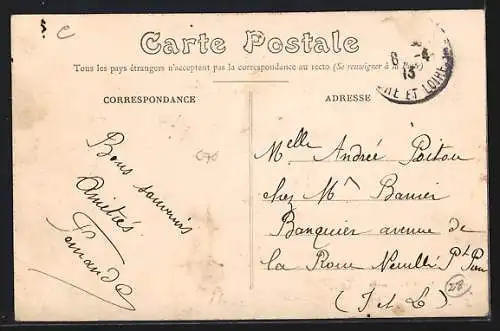 Carte Postale
Tous les pays étrangers n'acceptent pas la correspondance au recto (Se renseigner à la Poste)
CORRESPONDANCE
Bons souvenirs
Amitiés
Fernande
C70
ADRESSE
6 -4
13
RE ET LOIRE
Melle Andrée Poitou
chez Mr
Banquier avenue de
la Neuillé Pt Pierre
(I et L)
C